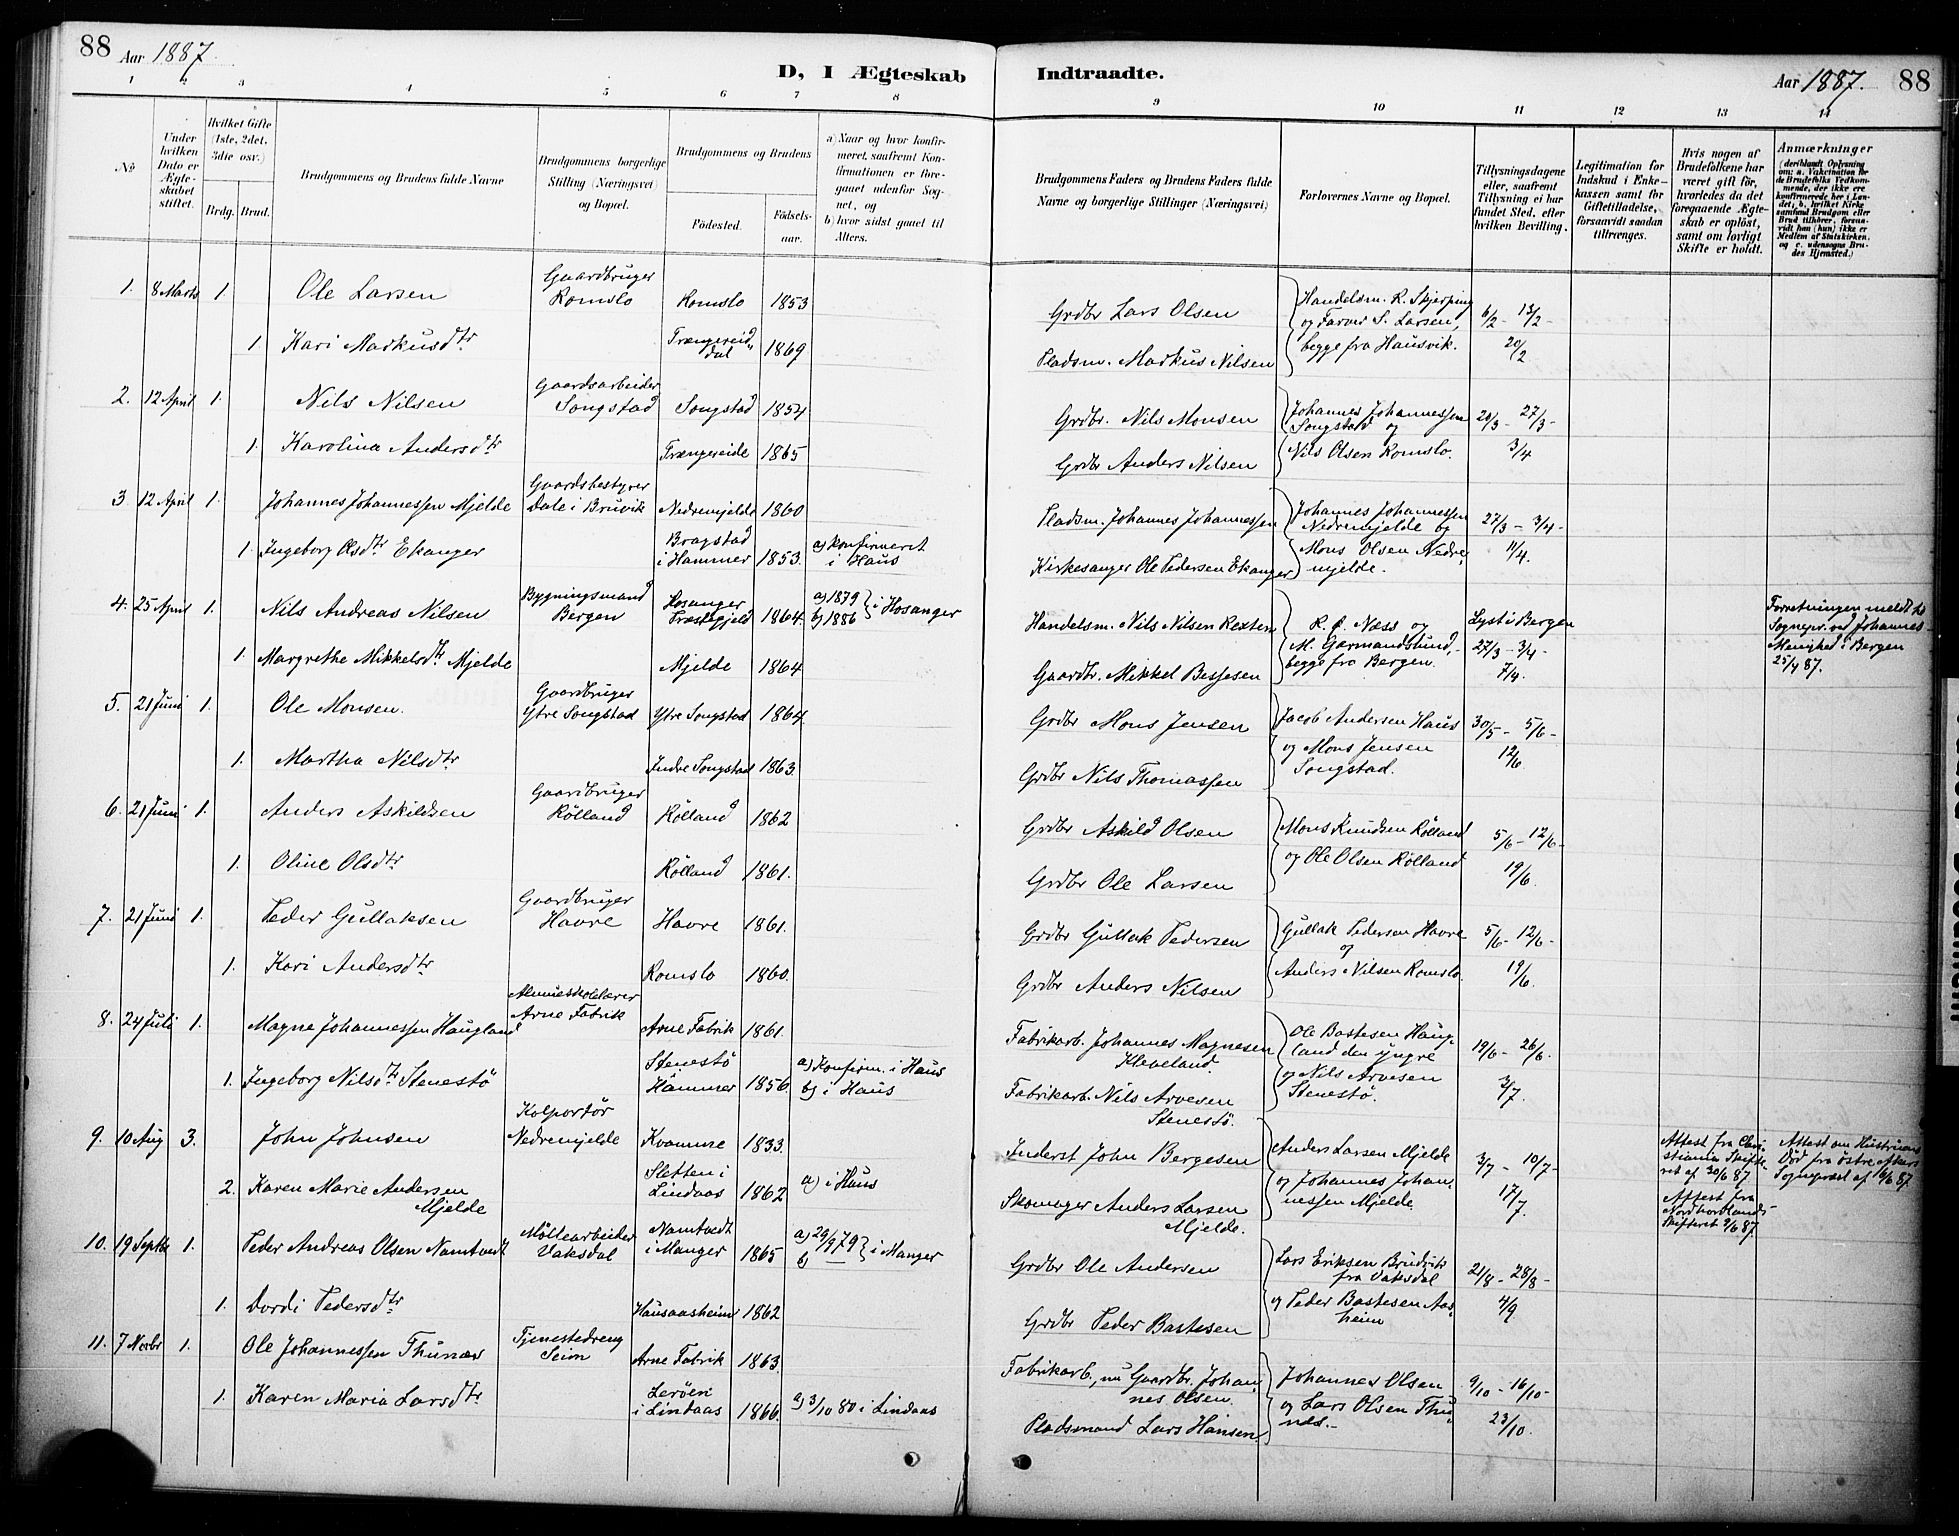 88 Aar 1887.
D, I Ægteskab Indtraadte.
Aar 1887. 88
1 2 3 4 5 6 7 8 9 10 11 12 13 14
No
Under hvilken Dato er Ægteskabet stiftet.
Hvilket Gifte (1ste, 2det, 3die osv.)
Brdg. Brud.
Brudgommens og Brudens fulde Navne
Brudgommens borgerlige Stilling (Næringsvei) og Bopæl.
Brudgommens og Brudens
Födested. Födselsaar.
a) Naar og hvor konfirmeret, saafremt Konfirmationen er foregaaet udenfor Sognet, og
b) hvor sidst gaaet til Alters.
Brudgommens Faders og Brudens Faders fulde Navne og borgerlige Stillinger (Næringsvei)
Forlovernes Navne og Bopæl.
Tillysningsdagene eller, saafremt Tillysning ei har fundet Sted, efter hvilken Bevilling.
Legitimation for Indskud i Enkekassen samt for Giftetilladelse, forsaavidt saadan tiltrænges.
Hvis nogen af Brudefolkene har været gift før, hvorledes da det foregaaende Ægteskab er oplöst, samt om lovligt Skifte er holdt.
Anmærkninger
(deriblandt Oplysning om: a. Vakcination for de Brudefolks Vedkommende, der ikke ere konfirmerede her i Landet; b. hvilket Kirkesamfund Brudgom eller Brud tilhører, forsaavidt han (hun) ikke er Medlem af Statskirken, og c. udensogns Brudes Hjemsted.)
1. 8 Marts 1. Ole Larsen Gaardbruger Romslo Romslo 1853 Grdbr Lars Olsen Handelsm. R. Skjerping og Farver S. Larsen, begge fra Hausvik. 6/2 - 13/2 - 20/2
1 Kari Markusdtr Trængereid dal 1869 Pladsm. Markus Nilsen
2. 12 April 1. Nils Nilsen Gaardsarbeider Songstad Songstad 1854 Grdbr. Nils Monsen Johannes Johannessen Songstad og Nils Olsen Romslo. 20/3 - 27/3 - 3/4
1. Karolina Andersdtr Trængereide 1865 Grdbr Anders Nilsen
3 12 April 1. Johannes Johannessen Mjelde Gaardsbestyrer Dale i Bruvik Nedremjelde 1860 Pladsm. Johannes Johannessen Johannes Johannessen Nedremjelde og Mons Olsen Nedremjelde. 27/3 - 3/4 - 11/4.
1. Ingeborg Olsdtr Ekanger Bragstad i Hammer 1853. a) konfirmeret i Haus Kirkesanger Ole Pedersen Ekanger
4. 25 April 1. Nils Andreas Nilsen Bygningsmand Bergen Hosanger Præstegjeld 1864. a) 1879 b) 1886 } i Hosanger Handelsm. Nils Nilsen Rexten R. C. Næss og M. Garmandslund, begge fra Bergen. Lyst i Bergen 27/3 - 3/4 - 7/4. Forretningen meldt til Sognepr. ved Johannes Menighed i Bergen 25/4 87.
1. Margrethe Mikkelsdtr Mjelde Mjelde 1864 Gaardbr. Mikkel Bessesen
5. 21 Juni 1. Ole Monsen. Gaardbruger Ytre Songstad Ytre Songstad 1864. Grdbr Mons Jensen Jacob Andersen Haus og Mons Jensen Songstad. 30/5 - 5/6 - 12/6.
1. Martha Nilsdtr Indre Songstad 1863. Grdbr Nils Thomassen
6. 21 Juni 1. Anders Askildsen Gaardbruger Rölland Rölland 1862 Grdbr Askild Olsen Mons Knudsen Rölland og Ole Olsen Rölland 5/6 - 12/6 - 19/6.
1. Oline Olsdtr Rölland 1861. Grdbr Ole Larsen
7. 21 Juni 1. Peder Gullaksen Gaardbruger Havre Havre 1861. Grdbr Gullak Pedersen Gullak Pedersen Havre og Anders Nilsen Romslo. 5/6 - 12/6 - 19/6.
1. Kari Andersdtr Romslo 1860. Grdbr Anders Nilsen
8. 24 Juli 1. Magne Johannessen Haugland Almueskolelærer Arne Fabrik Arne Fabrik 1861. Fabrikarb. Johannes Magnesen Kleveland. Ole Bastesen Haugland den yngre og Nils Arvesen Stenestö. 19/6 - 26/6. 3/7.
1. Ingeborg Nilsdtr Stenestö Stenestö Hammer 1856. a) Konfirm. i Haus b) i Haus Fabrikarb. Nils Arvesen Stenestö.
9. 10 Aug 3. John Johnsen Kolportör Nedremjelde Kvamme 1833. Inderst John Bergesen Anders Larsen Mjelde og Johannes Johannessen Mjelde. 3/7 - 10/7 - 17/7. Attest fra Christiania Skifteret af 30/6 87. Attest fra Nordhordlands Skifteret 9/6 87. Attest om Hustruens Död fra östre Akers Sognepræst af 16/6 87.
2. Karen Marie Andersen Mjelde Sletten i Lindaas 1862 a) i Haus Skomager Anders Larsen Mjelde.
10. 19 Septbr 1. Peder Andreas Olsen Namtvedt Möllearbeider Vaksdal Namtvedt i Manger 1865 a) 29/9 79 b) — } i Manger Grdbr Ole Andersen Lars Eriksen Brudvik fra Vaksdal og Peder Bastesen Aasheim 21/8 - 28/8 - 4/9
1. Dordi Pedersdtr Hausaasheim 1862 Grdbr Peder Bastesen
11. 7 Novbr 1. Ole Johannessen Thunæs Tjenestedreng Seim Arne Fabrik 1863. Fabrikarb., nu Gaardbr. Johannes Olsen. Johannes Olsen og Lars Olsen Thunæs. 9/10 - 16/10 - 23/10.
1. Karen Maria Larsdtr Leröen i Lindaas 1866. a) 3/10 80 i Lindaas Pladsmand Lars Hansen